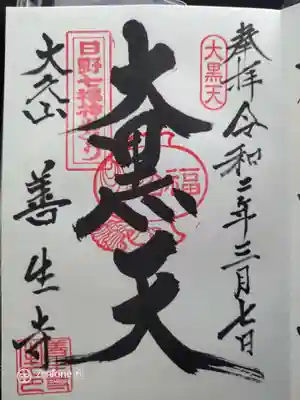 奉拝
大黒天
令和二年三月七日
大黒天
福
日野七福神めぐり
大久山
善生寺
Zenfone